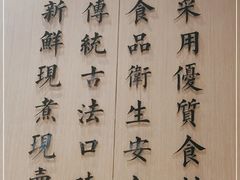 採用優質食材
食品衛生安
傳統古法口
新鮮現煮現賣